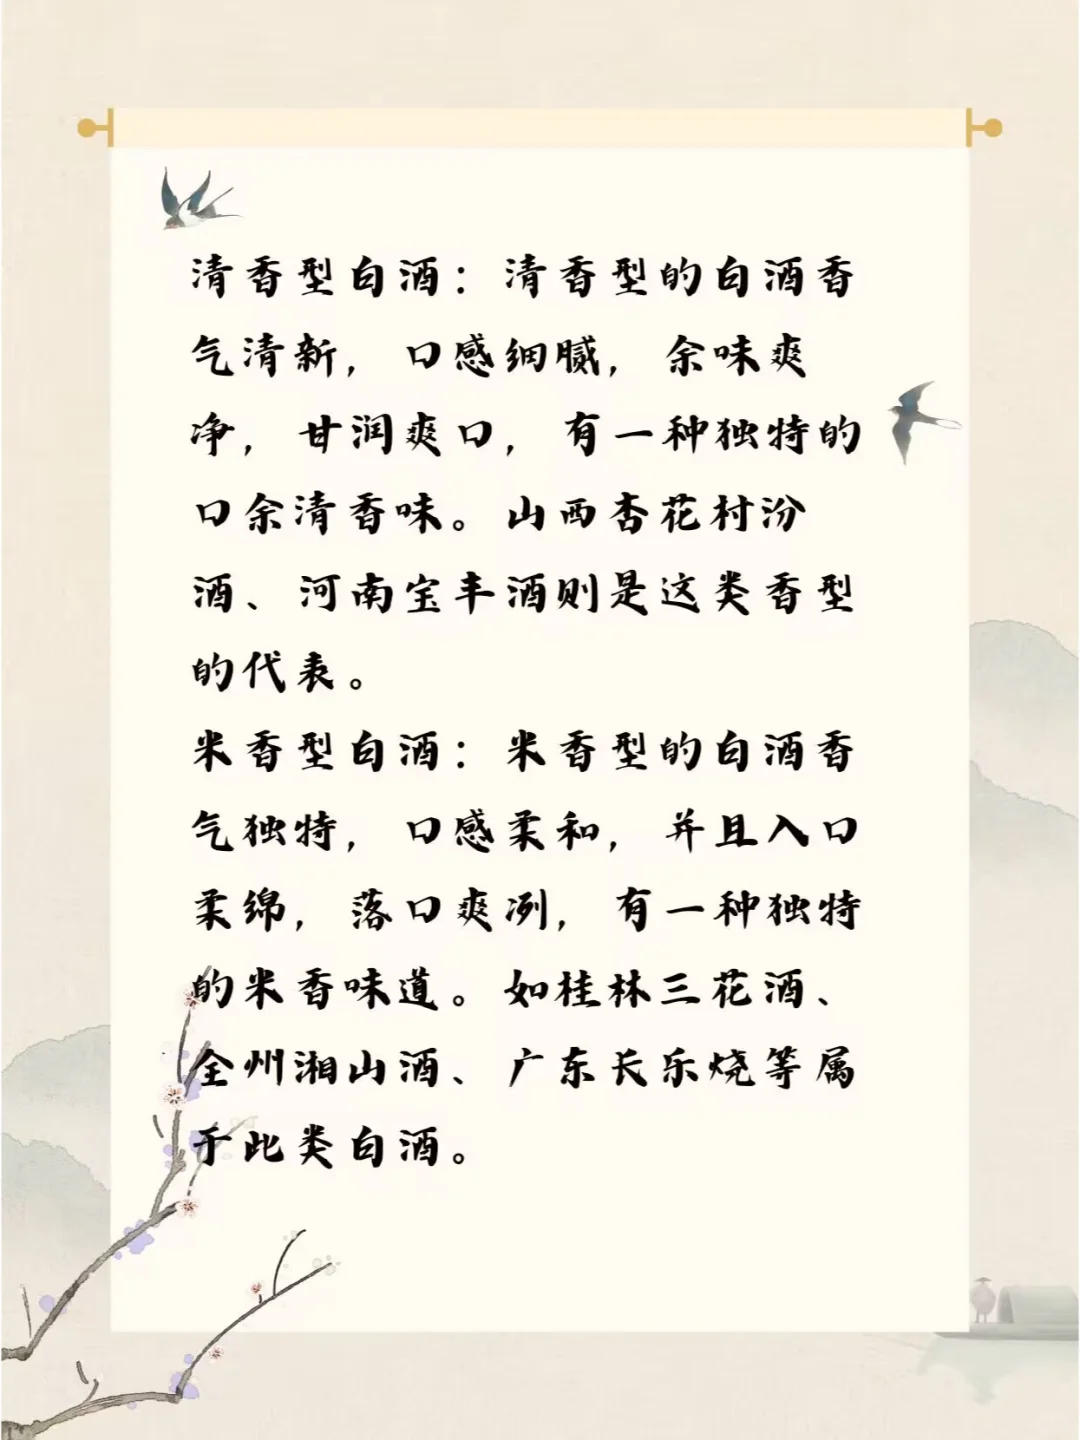 清香型白酒：清香型的白酒香
气清新，口感细腻，余味爽
净，甘润爽口，有一种独特的
口余清香味。山西杏花村汾
酒、河南宝丰酒则是这类香型
的代表。
米香型白酒：米香型的白酒香
气独特，口感柔和，并且入口
柔绵，落口爽冽，有一种独特
的米香味道。如桂林三花酒、
全州湘山酒、广东长乐烧等属
于此类白酒。